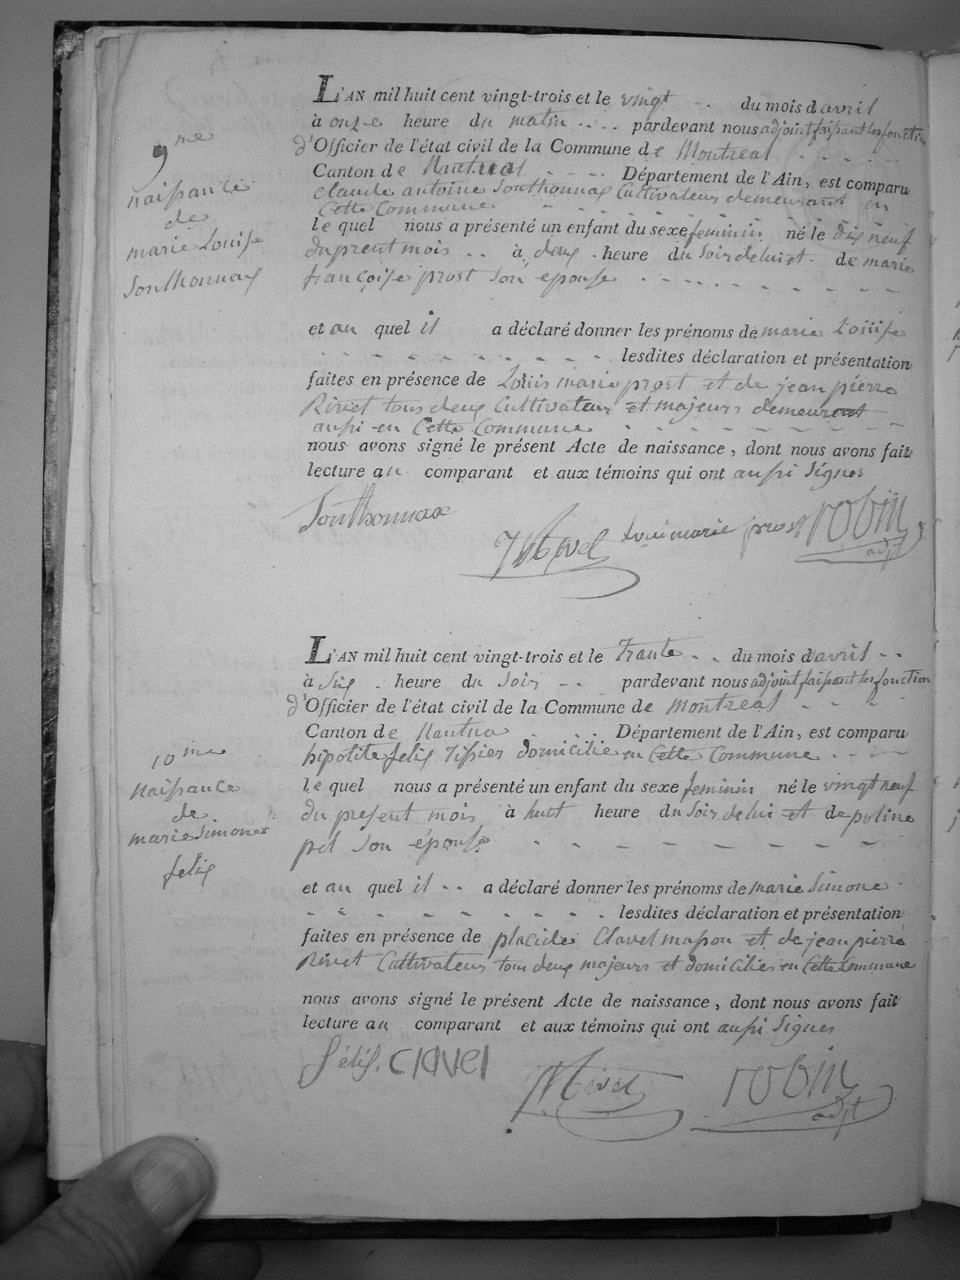 9me
naissance
de
marie Louise
Sonthonnax
L'AN mil huit cent vingt-trois et le vingt du mois d'avril
à onze heure du matin pardevant nous adjoint faisant les fonction
d'Officier de l'état civil de la Commune de Montreal
Canton de Nantua Département de l'Ain, est comparu
claude antoine Sonthonnax Cultivateur demeurant en
Cette Commune
le quel nous a présenté un enfant du sexe feminin né le dix neuf
du prent mois à deux heure du Soir de lui et de marie
françoise prost Son épouse
et au quel il a déclaré donner les prénoms de marie Louise
lesdites déclaration et présentation
faites en présence de Louis marie prost et de jean pierre
Rivet tous deux Cultivateur et majeurs demeurant
aussi en Cette Commune
nous avons signé le présent Acte de naissance, dont nous avons fait
lecture au comparant et aux témoins qui ont aussi Signer
Sonthonnax
Rivet Loui marie prost robin
adjt
10me
naissance
de
marie Simone
felix
L'AN mil huit cent vingt-trois et le Trante du mois d'avril
à Six heure du Soir pardevant nous adjoint faisant les fonction
d'Officier de l'état civil de la Commune de Montreal
Canton de Nantua Département de l'Ain, est comparu
hipolite felix domicilié en Cette Commune
le quel nous a présenté un enfant du sexe feminin né le vingt neuf
du present mois à huit heure du Soir de lui et de poline
Son épouse
et au quel il a déclaré donner les prénoms de marie Simone
lesdites déclaration et présentation
faites en présence de placide Clavel masson et de jean pierre
Rivet Cultivateur tous deux majeurs et domiciliés en Cette Commune
nous avons signé le présent Acte de naissance, dont nous avons fait
lecture au comparant et aux témoins qui ont aussi Signer
félix. Clavel
Rivet robin
adjt